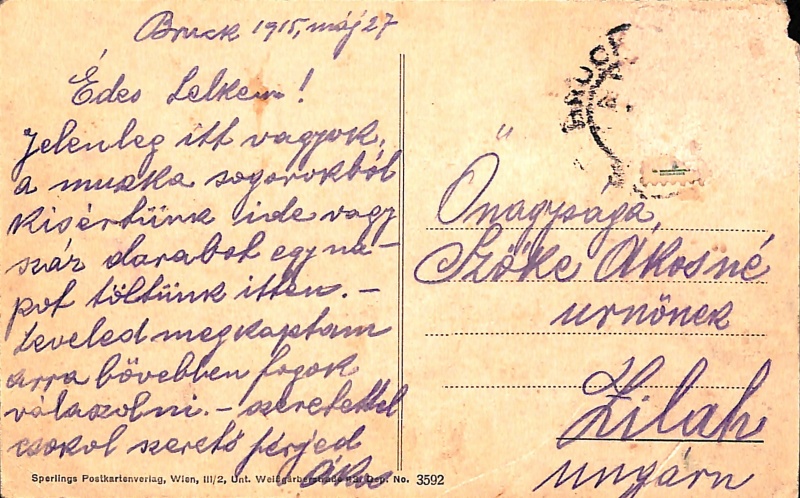 Bruck 1915, máj 27
Édes Lelkem!
Jelenleg itt vagyok,
a muszka sogorokból
kisértünk ide vagy
száz darabot egy na-
pot töltünk itten. -
Leveled megkaptam
arra bővebben fogok
válaszolni. - szeretettel
csokol szerető férjed
Ákos
BRUCK
Őnagysága
Szőke Ákosné
urnőnek
Zilah
Ungárn
Sperlings Postkartenverlag, Wien, III/2, Unt. Weißgärberstraße Dep. No. 3592